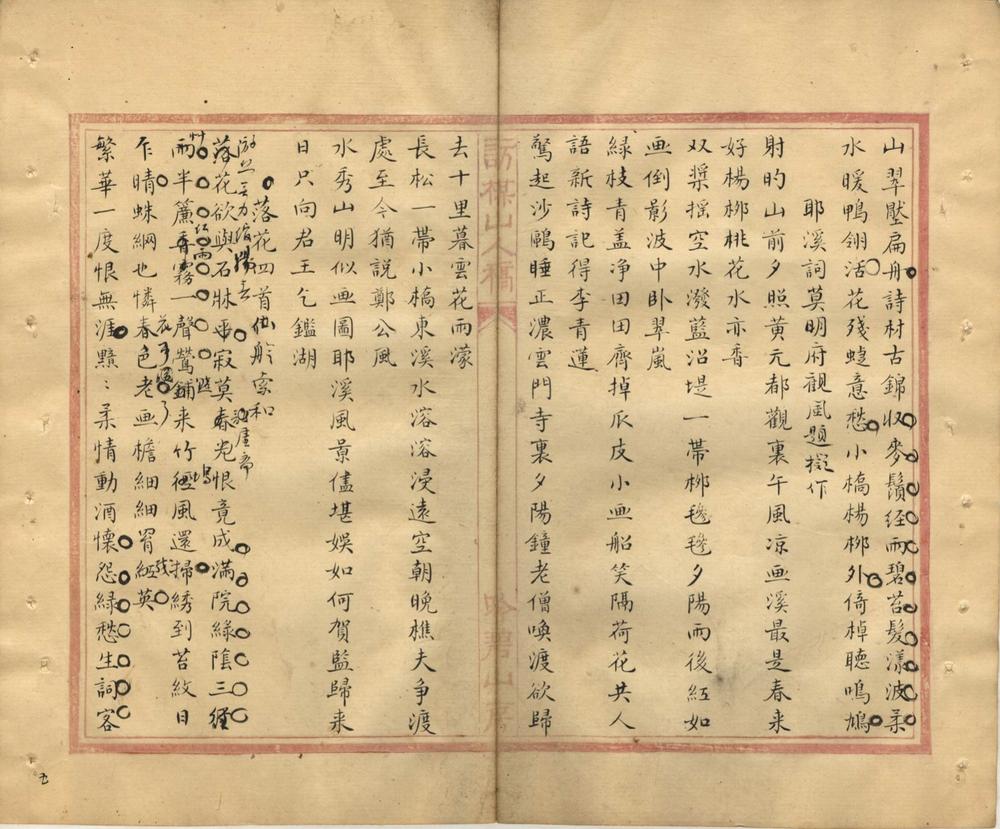 山翠壓扁舟詩村古錦收麥鬚経雨碧苔髮漾波柔
水暖鴨翎活花殘蜨意愁小橋楊桞外倚棹聽鳴鳩
耶溪詞莫明府觀風題擬作
射旳山前夕照黃元都觀裏午風凉画溪最是春来
好楊桞桃花水亦香
双槳揺空水潑藍沿堤一帯桞毿毿夕陽雨後紅如
画倒影波中卧翠嵐
緑枝青盖净田田齊掉瓜皮小画船笑隔荷花共人
語新詩記得李青蓮
驚起沙鷗睡正濃雲門寺裏夕陽鐘老僧喚渡欲歸
訪楳山人稿
吟碧山房
去十里暮雲花雨濛
長松一帶小橋東溪水溶溶浸遠空朝晚樵夫争渡
處至今猶説鄭公風
水秀山明似画圖耶溪風景儘堪娛如何賀監歸来
日只向君王乞鑑湖
落花四首仙舲索和
落花欲與石牀平寂莫春光恨竟成滿院緑陰三經
雨半簾香霧一聲鶯鋪来竹徑風還掃綉到苔紋日
乍晴蛛網也憐春色老画檐細細罥紅英
繁華一度恨無涯黯〻柔情動酒懷怨緑愁生詞客